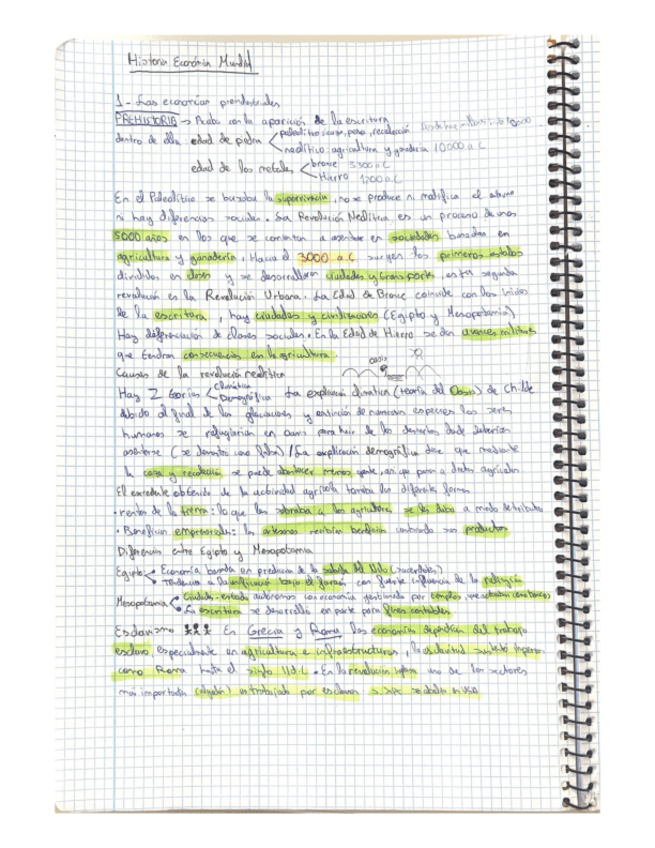 Historia Económica Mundial
1- Las economías preindustriales
PREHISTORIA → Acaba con la aparición de la escritura
dentro de ella edad de piedra paleolítico: caza, pesca, recolección
neolítico: agricultura y ganadería 10000 a.C
edad de los metales bronce 3300 a.C
Hierro 1200 a.C
En el Paleolítico se buscaba la supervivencia, no se produce ni modifica el
ni hay diferencias sociales. La Revolución Neolítica es un proceso de unos
5000 años en los que se comienzan a asentar en sociedades basadas en
agricultura y ganadería. Hacia el 3000 a.C surgen los primeros estados
divididos en clases y se desarrollaron ciudades y transporte, esta segunda
revolución es la Revolución Urbana. La Edad de Bronce coincide con los inicios
de la escritura, hay ciudades y civilizaciones (Egipto y Mesopotamia)
Hay diferenciación de clases sociales. En la Edad de Hierro se dan avances militares
que tendrán consecuencias en la agricultura.
Causas de la revolución neolítica
oasis
Hay 2 teorías Climática
Demográfica La explicación climática (teoría del Oasis) de Childe
debido al final de las glaciaciones y extinción de numerosas especies los seres
humanos se refugiarían en oasis para huir de los desiertos donde deberían
asentarse (se demostró como falsa) / La explicación demográfica dice que mediante
la caza y recolección se puede abastecer menos gente, así que pasan a dietas agrícolas
El excedente obtenido de la actividad agrícola tomaba las diferentes formas
· rentas de la tierra: lo que les sobraba a los agricultores se les daba a modo de tributo
· Beneficios empresariales: los artesanos recibían beneficios vendiendo sus productos
Diferencias entre Egipto y Mesopotamia
Egipto Economía basada en predicción de la subida del Nilo (sacerdotes)
Tendencia a planificación bajo el faraón con fuerte influencia de la religión
Mesopotamia Ciudades-estado autónomas con economía gestionada por templos, que actuaban como bancos
La escritura se desarrolló en parte para fines contables
Esclavismo En Grecia y Roma las economías dependían del trabajo
esclavo, especialmente en agricultura e infraestructuras, la esclavitud sustentó imperios
como Roma hasta el siglo II d.C. En la revolución uno de los sectores
más importantes (algodón) es trabajado por esclavos s. XIX se abole en USA